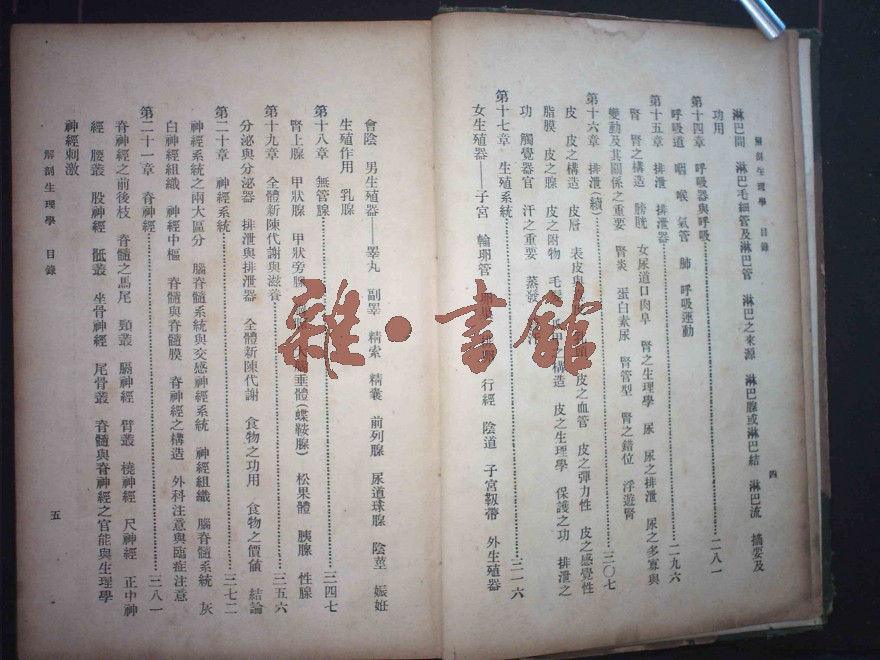 解剖生理學 目錄
四
淋巴間 淋巴毛細管及淋巴管 淋巴之來源 淋巴腺或淋巴結 淋巴流 摘要及
功用
第十四章 呼吸器與呼吸……二八一
呼吸道 咽 喉 氣管 肺 呼吸運動
第十五章 排泄 排泄器……二九六
腎 腎之構造 膀胱 女尿道口肉阜 腎之生理學 尿 尿之排泄 尿之多寡與
變動及其關係之重要 腎炎 蛋白素尿 腎管型 腎之錯位 浮遊腎
第十六章 排泄(續)……三〇七
皮 皮之構造 皮層 表皮與 皮之血管 皮之彈力性 皮之感覺性
脂膜 皮之腺 皮之附物 毛 之構造 皮之生理學 保護之功 排泄之
功 觸覺器官 汗之重要 蒸發
第十七章 生殖系統……三一六
女生殖器——子宮 輸卵管 行經 陰道 子宮靱帶 外生殖器
會陰 男生殖器——睪丸 副睪 精索 精囊 前列腺 尿道球腺 陰莖 娠妊
生殖作用 乳腺
第十八章 無管腺……三四七
腎上腺 甲狀腺 甲狀旁腺 大腦垂體(蝶鞍腺) 松果體 胰腺 性腺
第十九章 全體新陳代謝與滋養……三五六
分泌與分泌器 排泄與排泄器 全體新陳代謝 食物之功用 食物之價値 結論
第二十章 神經系統……三七二
神經系統之兩大區分 腦脊髓系統與交感神經系統 神經組織 腦脊髓系統 灰
白神經組織 神經中樞 脊髓與脊髓膜 脊神經之構造 外科注意與臨症注意
第二十一章 脊神經……三八一
脊神經之前後枝 脊髓之馬尾 頸叢 膈神經 臂叢 橈神經 尺神經 正中神
經 腰叢 股神經 骶叢 坐骨神經 尾骨叢 脊髓與脊神經之官能與生理學
神經刺激
解剖生理學 目錄
五
雜·書館